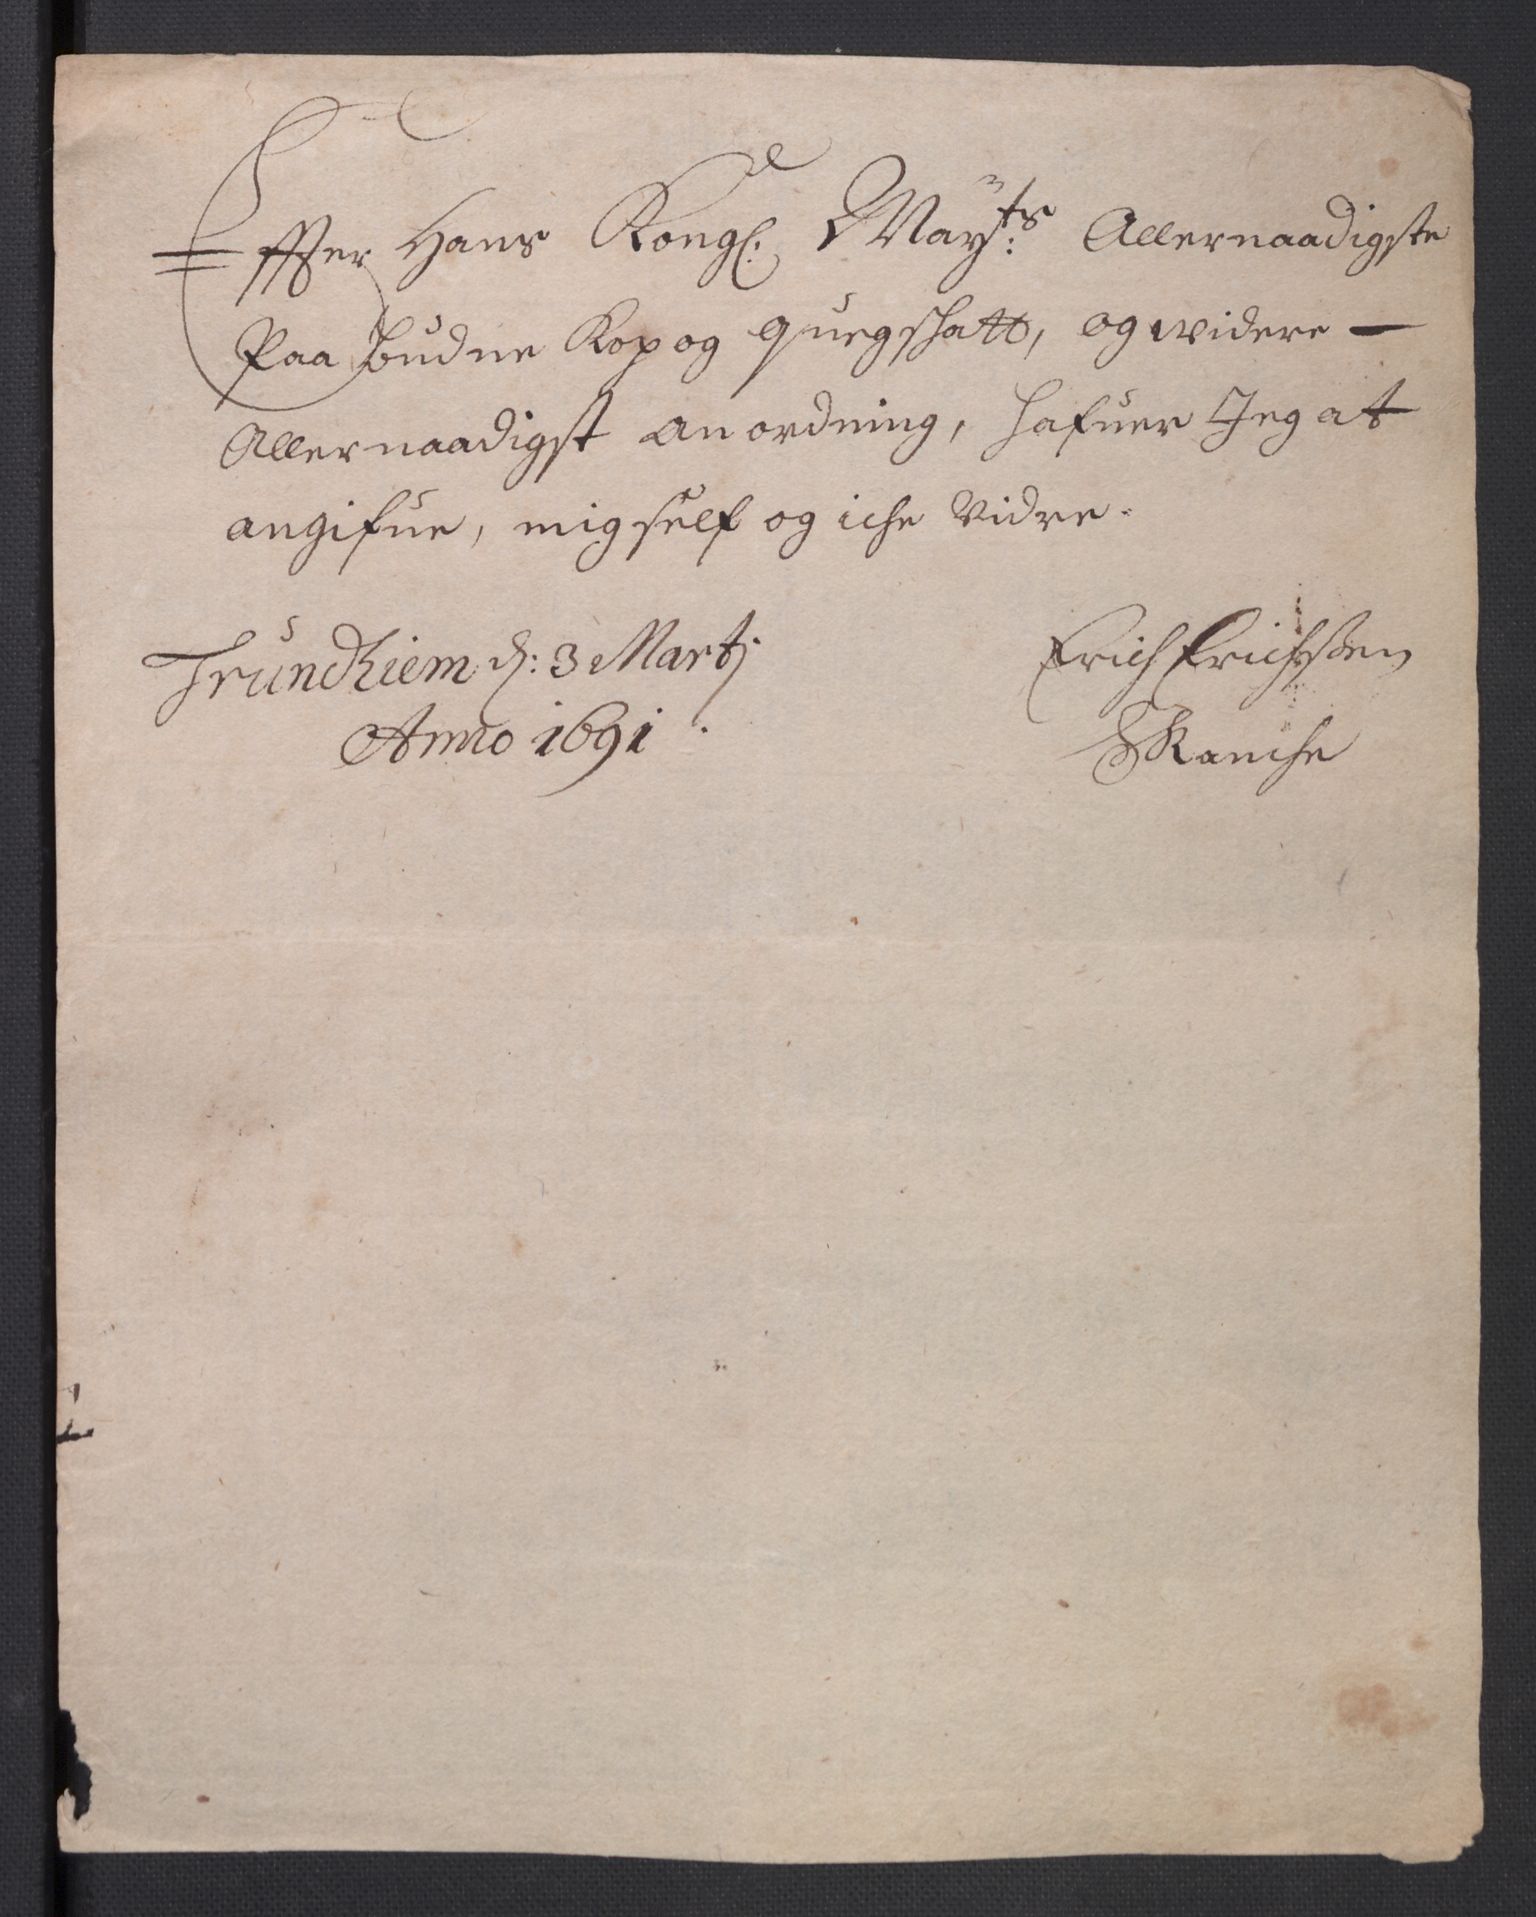 Effter Hans Kongl. Mayts: Allernaadigste
Paa budne Kop og quegschatt, og widere —
Allernaadigst anordning, hafuer Jeg at
angifue, mig self og iche Vidre.
Trundhiem d: 3 Martj
Anno 1691.
Erich Erichsøen
Skanche